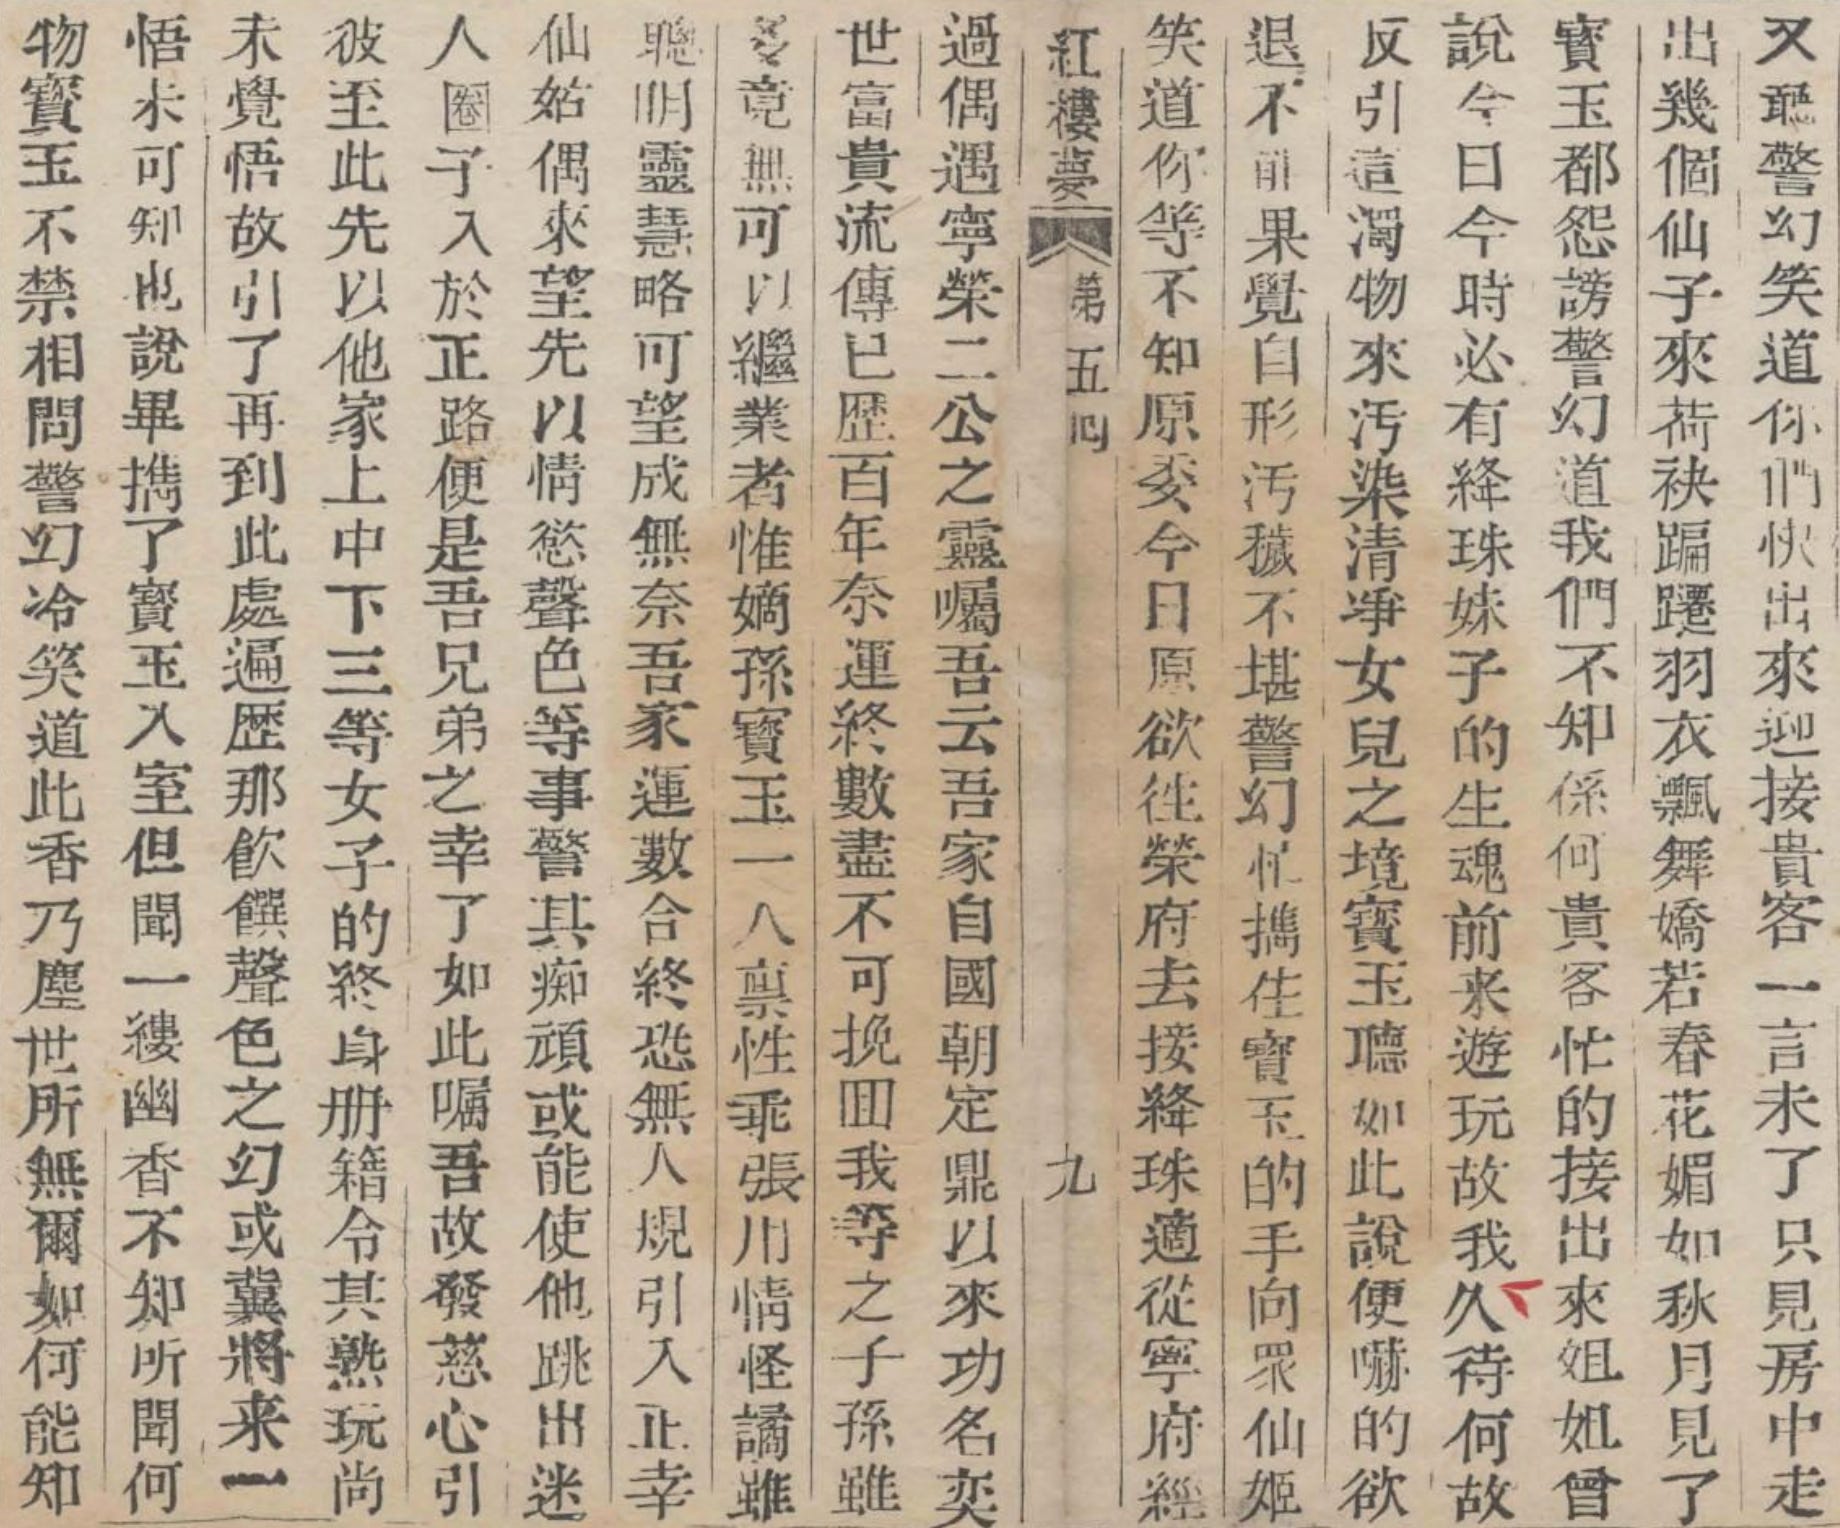 又聽警幻笑道你們快出來迎接貴客一言未了只見房中走
出幾個仙子來荷袂蹁躚羽衣飄舞嬌若春花媚如秋月見了
寶玉都怨謗警幻道我們不知係何貴客忙的接出來姐姐曾
說今日今時必有絳珠妹子的生魂前来遊玩故我久待何故
反引這濁物來汚染清凈女兒之境寶玉聽如此說便嚇的欲
退不前果覺自形汚穢不堪警幻忙攜住寶玉的手向眾仙姬
笑道你等不知原委今日原欲徃榮府去接絳珠適從寧府經
紅樓夢 第五囬 九
過偶遇寧榮二公之靈囑吾云吾家自國朝定鼎以來功名奕
世富貴流傳已歴百年奈運終數盡不可挽囬我等之子孫雖
多竟無可以繼業者惟嫡孫寶玉一人禀性乖張用情怪譎雖
聰明靈慧略可望成無奈吾家運數合終恐無人規引入正幸
仙姑偶來望先以情慾聲色等事警其痴頑或能使他跳出迷
人圈子入於正路便是吾兄弟之幸了如此嘱吾故發慈心引
彼至此先以他家上中下三等女子的終身册籍令其熟玩尚
未覺悟故引了再到此處遍歴那飲饌聲色之幻或冀將来一
悟未可知也說畢攜了寶玉入室但聞一縷幽香不知所聞何
物寶玉不禁相問警幻冷笑道此香乃塵世所無爾如何能知